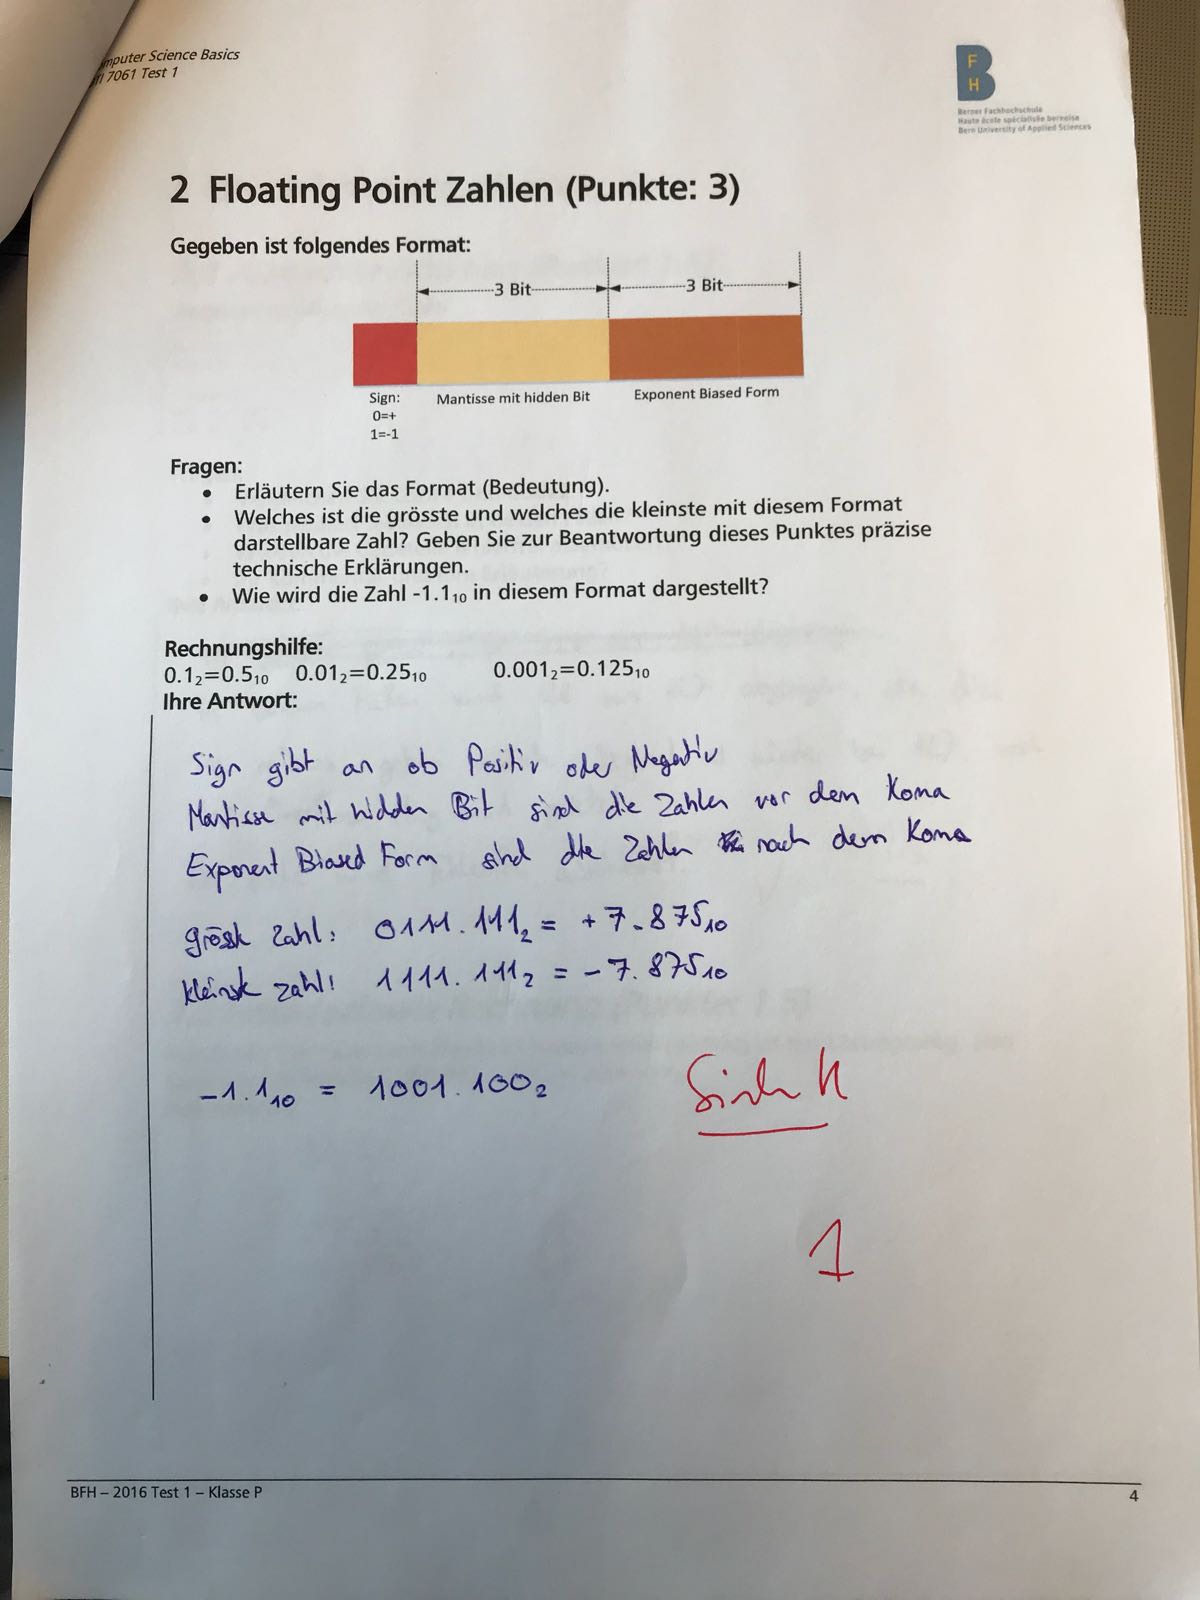 mputer Science Basics
7061 Test 1
F
B
H
Berner Fachhochschule
Haute école spécialisée bernoise
Bern University of Applied Sciences
2 Floating Point Zahlen (Punkte: 3)
Gegeben ist folgendes Format:
3 Bit 3 Bit
Sign: Mantisse mit hidden Bit Exponent Biased Form
0=+
1=-1
Fragen:
• Erläutern Sie das Format (Bedeutung).
• Welches ist die grösste und welches die kleinste mit diesem Format
darstellbare Zahl? Geben Sie zur Beantwortung dieses Punktes präzise
technische Erklärungen.
• Wie wird die Zahl -1.1₁₀ in diesem Format dargestellt?
Rechnungshilfe:
0.1₂=0.5₁₀ 0.01₂=0.25₁₀ 0.001₂=0.125₁₀
Ihre Antwort:
Sign gibt an ob Positiv oder Negativ
Mantisse mit hidden Bit sind die Zahlen vor dem Koma
Exponent Biased Form sind die Zahlen nach dem Koma
grösste Zahl: 0111.111₂ = +7.875₁₀
kleinste Zahl: 1111.111₂ = -7.875₁₀
-1.1₁₀ = 1001.100₂
1
BFH – 2016 Test 1 – Klasse P
4